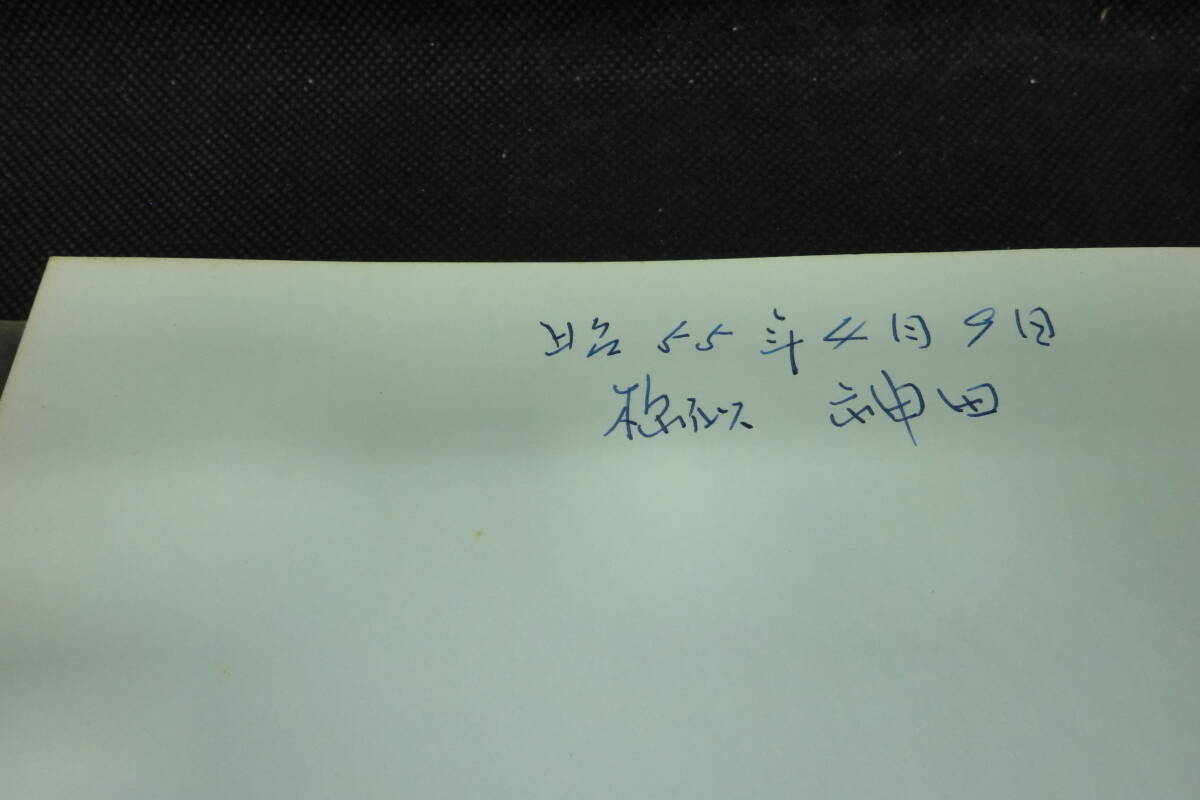 昭和55年4月9日
神田